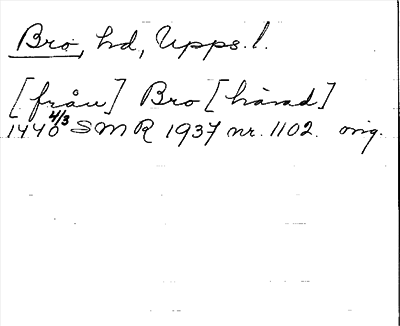 Bro, hd, Upps. l.
[från] Bro [härad]
1440 4/3 SMR 1937 nr. 1102. orig.